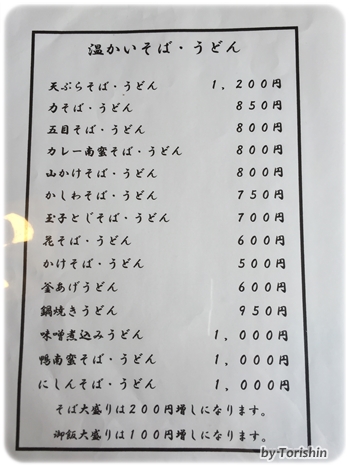 温かいそば・うどん
天ぷらそば・うどん 1,200円
力そば・うどん 850円
五目そば・うどん 800円
カレー南蛮そば・うどん 800円
山かけそば・うどん 800円
かしわそば・うどん 750円
玉子とじそば・うどん 700円
花そば・うどん 600円
かけそば・うどん 500円
釜あげうどん 600円
鍋焼きうどん 950円
味噌煮込みうどん 1,000円
鴨南蛮そば・うどん 1,000円
にしんそば・うどん 1,000円
そば大盛りは200円増しになります。
御飯大盛りは100円増しになります。
by Torishin